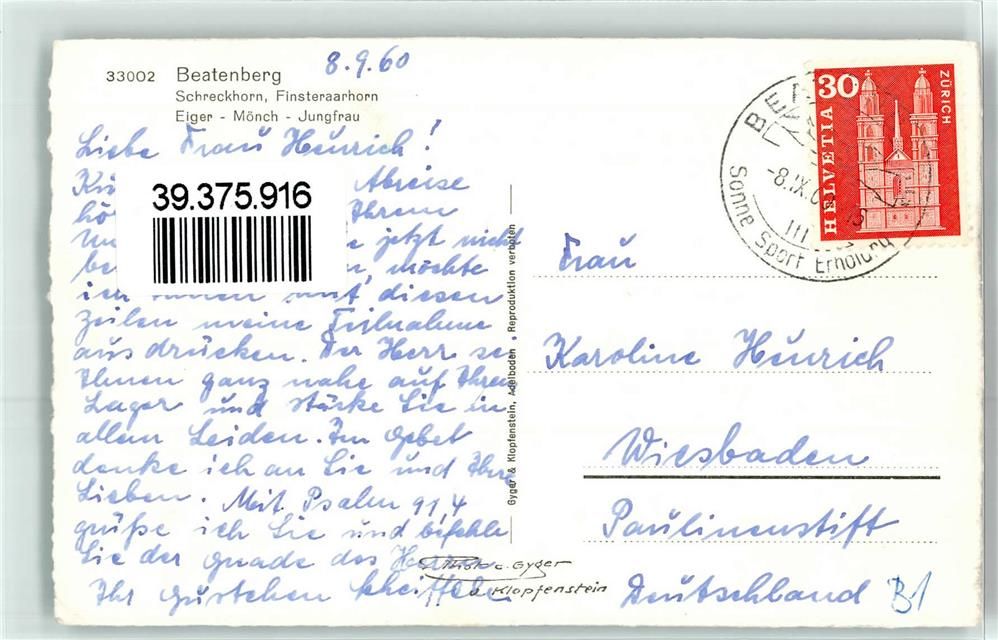 33002 Beatenberg
Schreckhorn, Finsteraarhorn
Eiger - Mönch - Jungfrau
8.9.60
Liebe Frau Heurich!
39.375.916
Abreise
Ihrem
jetzt nicht
möchte
ich Ihnen mit diesen
Zeilen meine Teilnahme
ausdrücken. Der Herr sei
Ihnen ganz nahe auf Ihrem
Lager und stärke Sie in
allem Leiden. Im Gebet
denke ich an Sie und Ihre
Lieben. Mit Psalm 91,4
grüße ich Sie und befehle
Sie der Gnade des Herrn
Ihr Gustchen
Gyger & Klopfenstein, Adelboden, Reproduktion verboten
Photo Gyger
Klopfenstein
30
HELVETIA
ZÜRICH
-8.IX.60
III
Sonne Sport Erholung
Frau
Karoline Heurich
Wiesbaden
Paulinenstift
Deutschland
B1